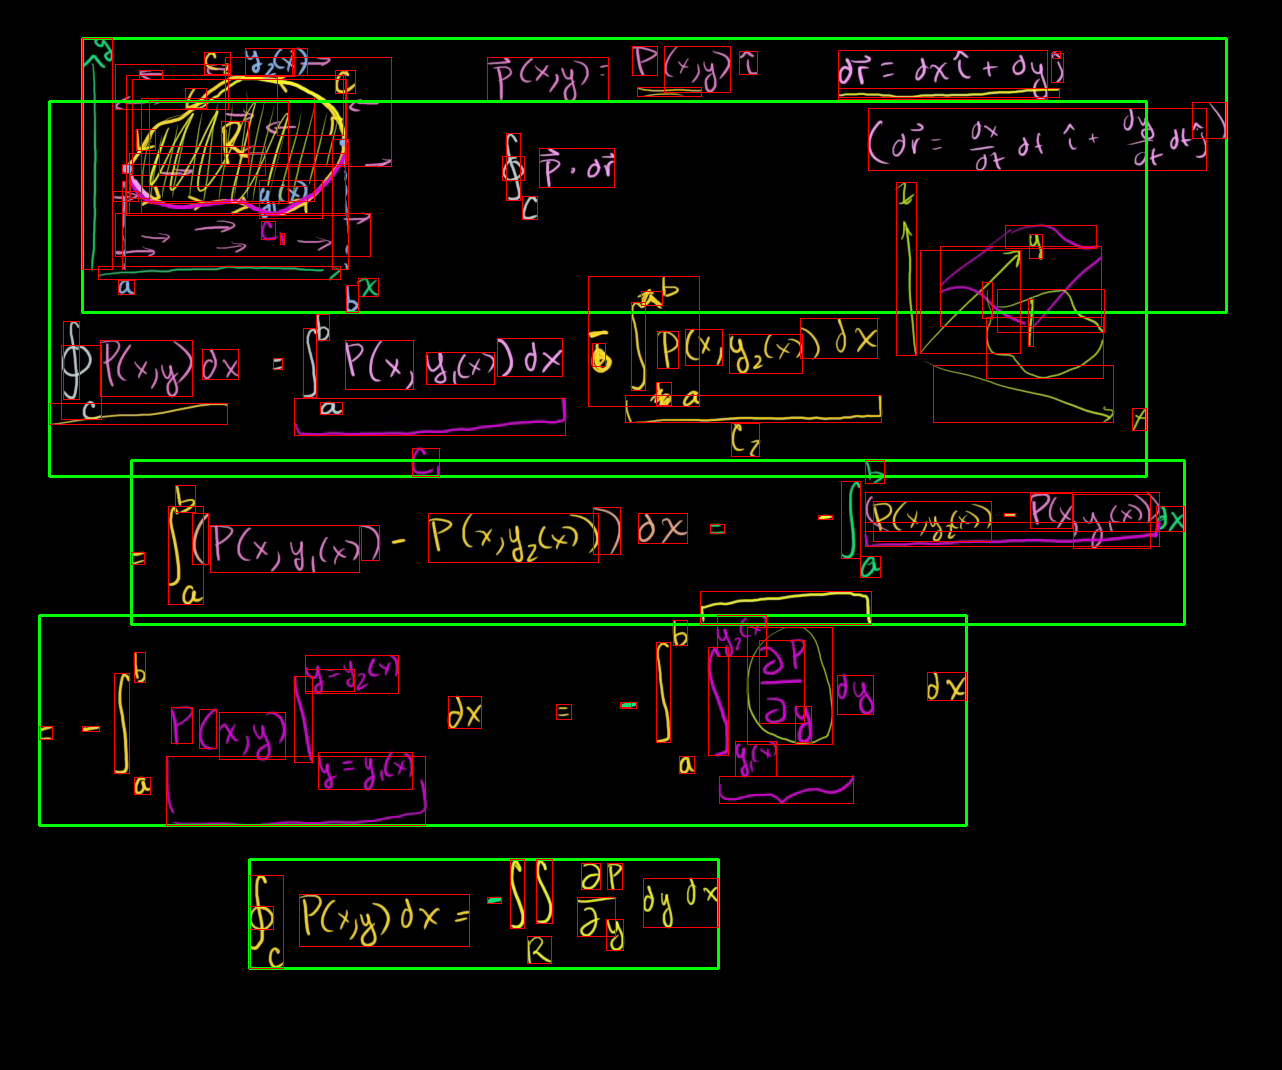 y C₂ y₂(x) C P⃗(x,y) = P(x,y) î dr⃗ = dx î + dy ĵ
R (dr⃗ = dx/dt dt î + dy/dt dt ĵ)
∮_C P⃗ · dr⃗
y₁(x)
C₁
a b x y
∮_C P(x,y) dx = ∫_a^b P(x, y₁(x)) dx - ∫_a^b P(x, y₂(x)) dx x
C₁ C₂
= ∫_a^b (P(x, y₁(x)) - P(x, y₂(x))) dx = - ∫_a^b (P(x, y₂(x)) - P(x, y₁(x))) dx
= - ∫_a^b P(x,y) |_{y = y₁(x)}^{y = y₂(x)} dx = - ∫_a^b ∫_{y₁(x)}^{y₂(x)} ∂P/∂y dy dx
∮_C P(x,y) dx = - ∬_R ∂P/∂y dy dx